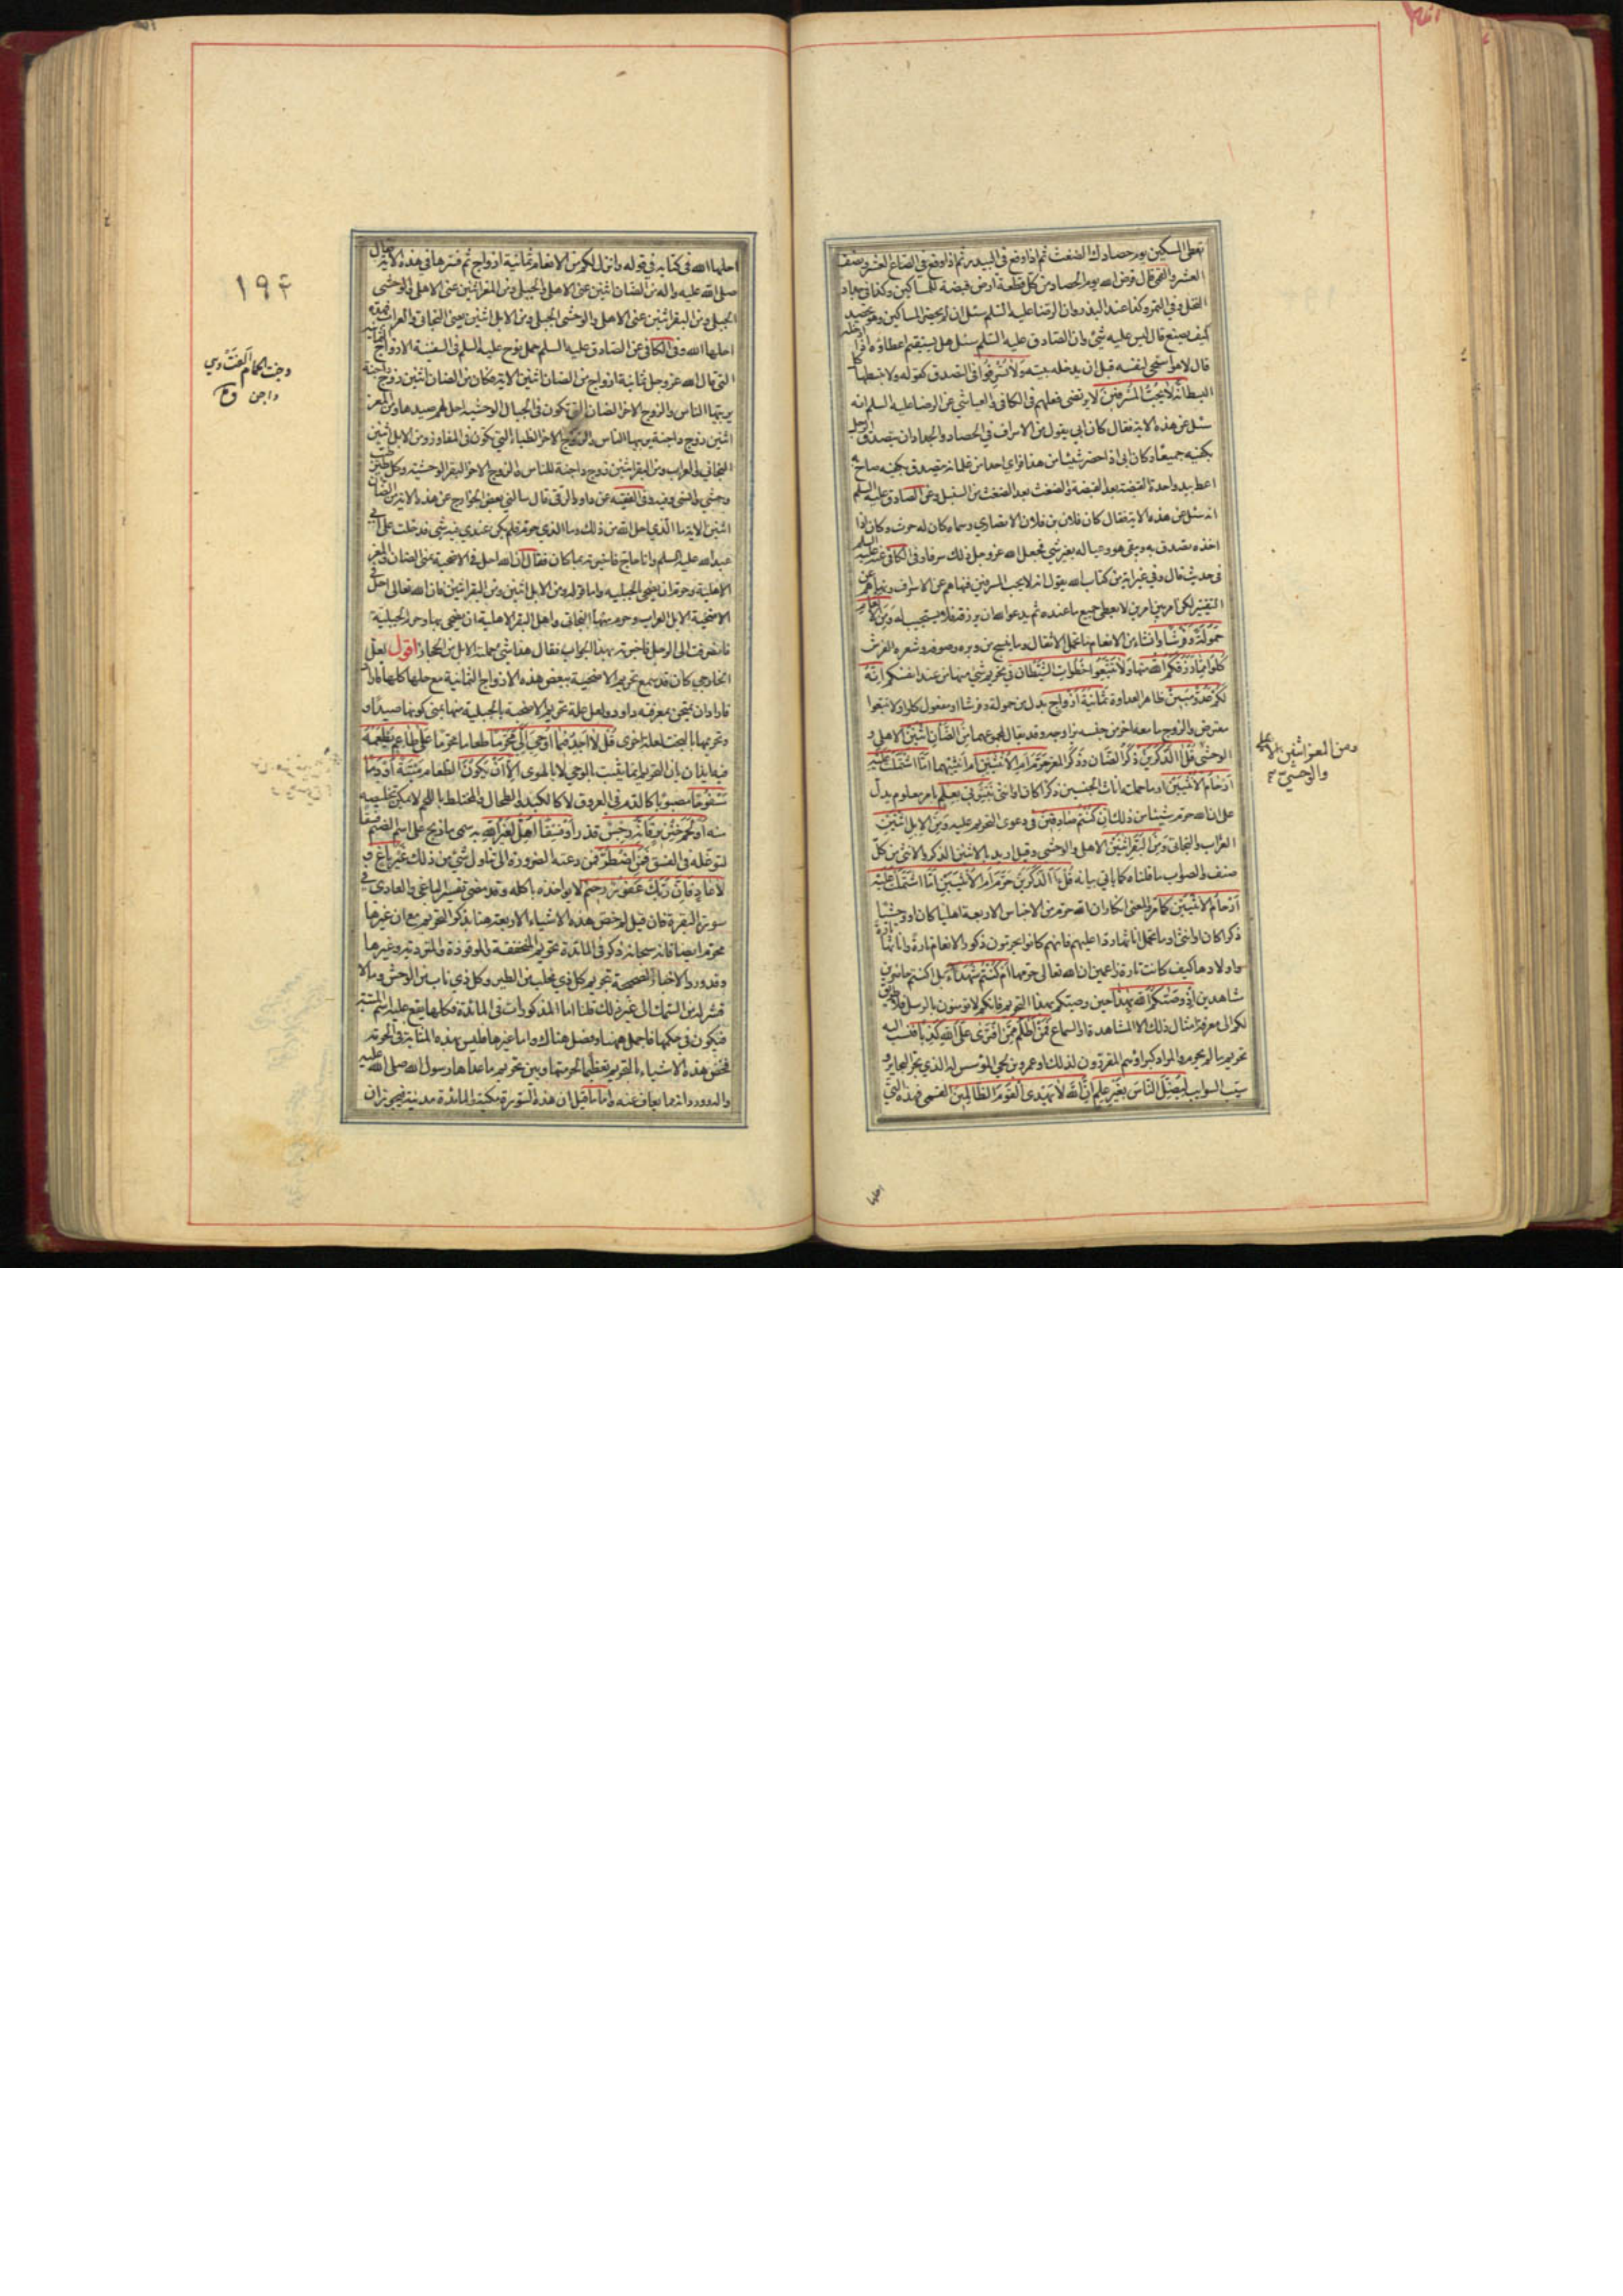 تعطي المسكين يوم حصادك الضغث ثم اذا وقع في البيدر ثم اذا وقع في الصاع العشر ونصف
العشر والقمي قال فرض الله يوم الحصاد من كل قطعة ارض قبضة للمساكين وكذا في جداد
النخل وفي التمر وكذا عند البذر وان الرضا عليه السلم سئل ان لم يحضر المساكين وهو يحصد
كيف يصنع قال ليس عليه شئ وان الصادق عليه السلم سئل هل يستقيم اعطاؤه اذا ادخله
قال لا هو اسخى لنفسه قبل ان يدخله بيته وَلَا تُسْرِفُوا في التصدق كقوله ولا تبسطها كل
البسط اِنَّهُ لَا يُحِبُّ الْمُسْرِفِينَ لا يرتضى فعلهم في الكافي والعياشي عن الرضا عليه السلم انه
سئل عن هذه الاية فقال كان ابي يقول من الاسراف في الحصاد والجداد ان يتصدق الرجل
بكفيه جميعا وكان ابي اذا حضر شيئا من هذا فراى احدا من غلمانه يتصدق بكفيه صاح به
اعط بيد واحدة القبضة بعد القبضة والضغث بعد الضغث من السنبل وعن الصادق عليه السلم
انه سئل عن هذه الاية فقال كان فلان بن فلان الانصاري وسماه كان له حرث وكان اذا
اخذه تصدق به ويبقى هو وعياله بغير شئ فجعل الله عز وجل ذلك سرفا وفي الكافي عنه عليه السلم
في حديث قال وفي غير اية من كتاب الله يقول انه لا يحب المسرفين فنهاهم عن الاسراف ونهاهم عن
التقتير لكن امر بين امرين لا يعطي جميع ما عنده ثم يدعو الله ان يرزقه فلا يستجيب له وَمِنَ الْاَنْعَامِ
حَمُولَةً وَفَرْشًا وانشاء من الانعام ما تحمل الاثقال وما ينسج من وبره وصوفه وشعره الفرش
كُلُوا مِمَّا رَزَقَكُمُ اللهُ منها وَلَا تَتَّبِعُوا خُطُوَاتِ الشَّيْطَانِ في تحريم شئ منها من عند انفسكم اِنَّهُ
لَكُمْ عَدُوٌّ مُبِينٌ ظاهر العداوة ثَمَانِيَةَ اَزْوَاجٍ بدل من حمولة وفرشا او مفعول كلوا ولا تتبعوا
معترض والزوج ما معه اخر من جنسه يزاوجه وقد يقال لمجموعهما مِنَ الضَّأْنِ اثْنَيْنِ الاهلي و
الوحشي قُلْ آلذَّكَرَيْنِ ذكر الضان وذكر المعز حَرَّمَ اَمِ الْاُنْثَيَيْنِ ام انثييهما اَمَّا اشْتَمَلَتْ عَلَيْهِ
اَرْحَامُ الْاُنْثَيَيْنِ او ما حملت اناث الجنسين ذكرا كان او انثى نَبِّئُونِي بِعِلْمٍ بامر معلوم يدل
على ان الله حرم شيئا من ذلك اِنْ كُنْتُمْ صَادِقِينَ في دعوى التحريم عليه وَمِنَ الْاِبِلِ اثْنَيْنِ
العراب والبخاتي وَمِنَ الْبَقَرِ اثْنَيْنِ الاهلي والوحشي وقيل اريد بالاثنين الذكر والانثى من كل
صنف والصواب ما قلناه كما ياتي بيانه قُلْ آلذَّكَرَيْنِ حَرَّمَ اَمِ الْاُنْثَيَيْنِ اَمَّا اشْتَمَلَتْ عَلَيْهِ
اَرْحَامُ الْاُنْثَيَيْنِ كما مر والمعنى انكار ان الله حرم من الاجناس الاربعة اهليا كان او وحشيا
ذكرا كان او انثى او ما تحمل اناثها ردا عليهم فانهم كانوا يحرمون ذكور الانعام تارة واناثها تارة
واولادها كيف كانت تارة زاعمين ان الله تعالى حرمها اَمْ كُنْتُمْ شُهَدَاءَ بل اكنتم حاضرين
شاهدين اِذْ وَصَّيكُمُ اللهُ بِهَذَا حين وصيكم بهذا التحريم فانكم لا تؤمنون بالرسل فلا طريق
لكم الى معرفة امثال ذلك الا المشاهدة والسماع فَمَنْ اَظْلَمُ مِمَّنِ افْتَرَى عَلَى اللهِ كَذِبًا فنسب اليه
تحريم ما لم يحرم والمراد كبراؤهم المقررون لذلك او عمرو بن لحي المؤسس له الذي بحر البحاير و
سيب السوايب لِيُضِلَّ النَّاسَ بِغَيْرِ عِلْمٍ اِنَّ اللهَ لَا يَهْدِي الْقَوْمَ الظَّالِمِينَ القمي فهذه التي
ومن المعز اثنين الاهلي
والوحشي
احلها
احلها الله في كتابه في قوله وانزل لكم من الانعام ثمانية ازواج ثم فسرها في هذه الاية فقال
صلى الله عليه واله من الضان اثنين عنى الاهلي والجبلي ومن المعز اثنين عنى الاهلي والوحشي
الجبلي ومن البقر اثنين عنى الاهلي والوحشي الجبلي ومن الابل اثنين يعني البخاتي والعراب فهذه
احلها الله وفي الكافي عن الصادق عليه السلم حمل نوح عليه السلم في السفينة الازواج الثمانية
التي قال الله عز وجل ثمانية ازواج من الضان اثنين الاية فكان من الضان اثنين زوج داجنة
يربيها الناس والزوج الاخر الضان التي تكون في الجبال الوحشية احل لهم صيدها ومن المعز
اثنين زوج داجنة يربيها الناس والزوج الاخر الظباء التي تكون في المفاوز ومن الابل اثنين
البخاتي والعراب ومن البقر اثنين زوج داجنة للناس والزوج الاخر البقر الوحشية وكل طير طيب
وحشي وانسي وفيه وفي الفقيه عن داود الرقي قال سالني بعض الخوارج عن هذه الاية من الضان
اثنين الاية ما الذي احل الله من ذلك وما الذي حرم فلم يكن عندي فيه شئ فدخلت على ابي
عبدالله عليه السلم وانا حاج فاخبرته بما كان فقال ان الله احل في الاضحية بمنى الضان والمعز
الاهلية وحرم ان يضحى الجبلية واما قوله ومن الابل اثنين ومن البقر اثنين فان الله تعالى احل في
الاضحية الابل العراب وحرم منها البخاتي واحل البقر الاهلية ان يضحى بها وحرم الجبلية
فانصرفت الى الرجل فاخبرته بهذا الجواب فقال هذا شئ حملته الابل من الحجاز اقول لعل
الخارجي كان قد سمع تحريم الاضحية ببعض هذه الازواج الثمانية مع حلها كلها
فاراد ان يمتحن بمعرفته داود ولعل علة تحريم الاضحية بالجبلية منها بمنى كونها صيدا و
وتحريمها بالبخت لعلة اخرى قُلْ لَا اَجِدُ فِيمَا اُوحِيَ اِلَيَّ مُحَرَّمًا طعاما محرما عَلَى طَاعِمٍ يَطْعَمُهُ
فيه ايذان بان التحريم انما يثبت بالوحي لا بالهوى اِلَّا اَنْ يَكُونَ الطعام مَيْتَةً اَوْ دَمًا
مَسْفُوحًا مصبوبا كالدم في العروق لا كالكبد والطحال والمختلط باللحم لا يمكن تخليصه
منه اَوْ لَحْمَ خِنْزِيرٍ فَاِنَّهُ رِجْسٌ قذر اَوْ فِسْقًا اُهِلَّ لِغَيْرِ اللهِ بِهِ سمي ما ذبح على اسم الصنم فسقا
لتوغله في الفسق فَمَنِ اضْطُرَّ فمن دعته الضرورة الى تناول شئ من ذلك غَيْرَ بَاغٍ وَ
لَا عَادٍ فَاِنَّ رَبَّكَ غَفُورٌ رَحِيمٌ لا يؤاخذه باكله وقد مضى تفسير الباغي والعادي في
سورة البقرة فان قيل لم خص هذه الاشياء الاربعة هنا بذكر التحريم مع ان غيرها
محرم ايضا فانه سبحانه ذكر في المائدة تحريم المنخنقة والموقوذة والمتردية وغيرها
وقد ورد الاخبار الصحيحة بتحريم كل ذي مخلب من الطير وكل ذي ناب من الوحش وما لا
قشر له من السمك الى غير ذلك قلنا اما المذكورات في المائدة فكلها يقع عليه اسم الميتة
فتكون في حكمها فاجمل ههنا وفصل هناك واما غيرها فليس بهذه المثابة في الحرمة
فخص هذه الاشياء بالتحريم تعظيما لحرمتها وبين تحريم ما عداها رسول الله صلى الله عليه
واله وورد انه مما يعاف عنه واما ما قيل ان هذه السورة مكية والمائدة مدنية فيجوز ان
١٩٤
دجنت الحمام
داجن ق